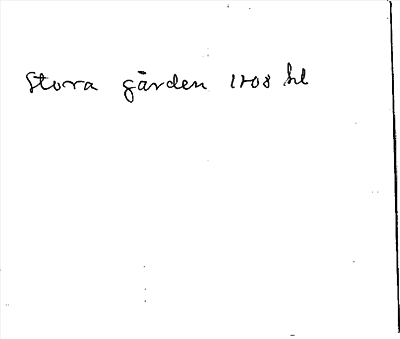 Stora gården 1708 hl